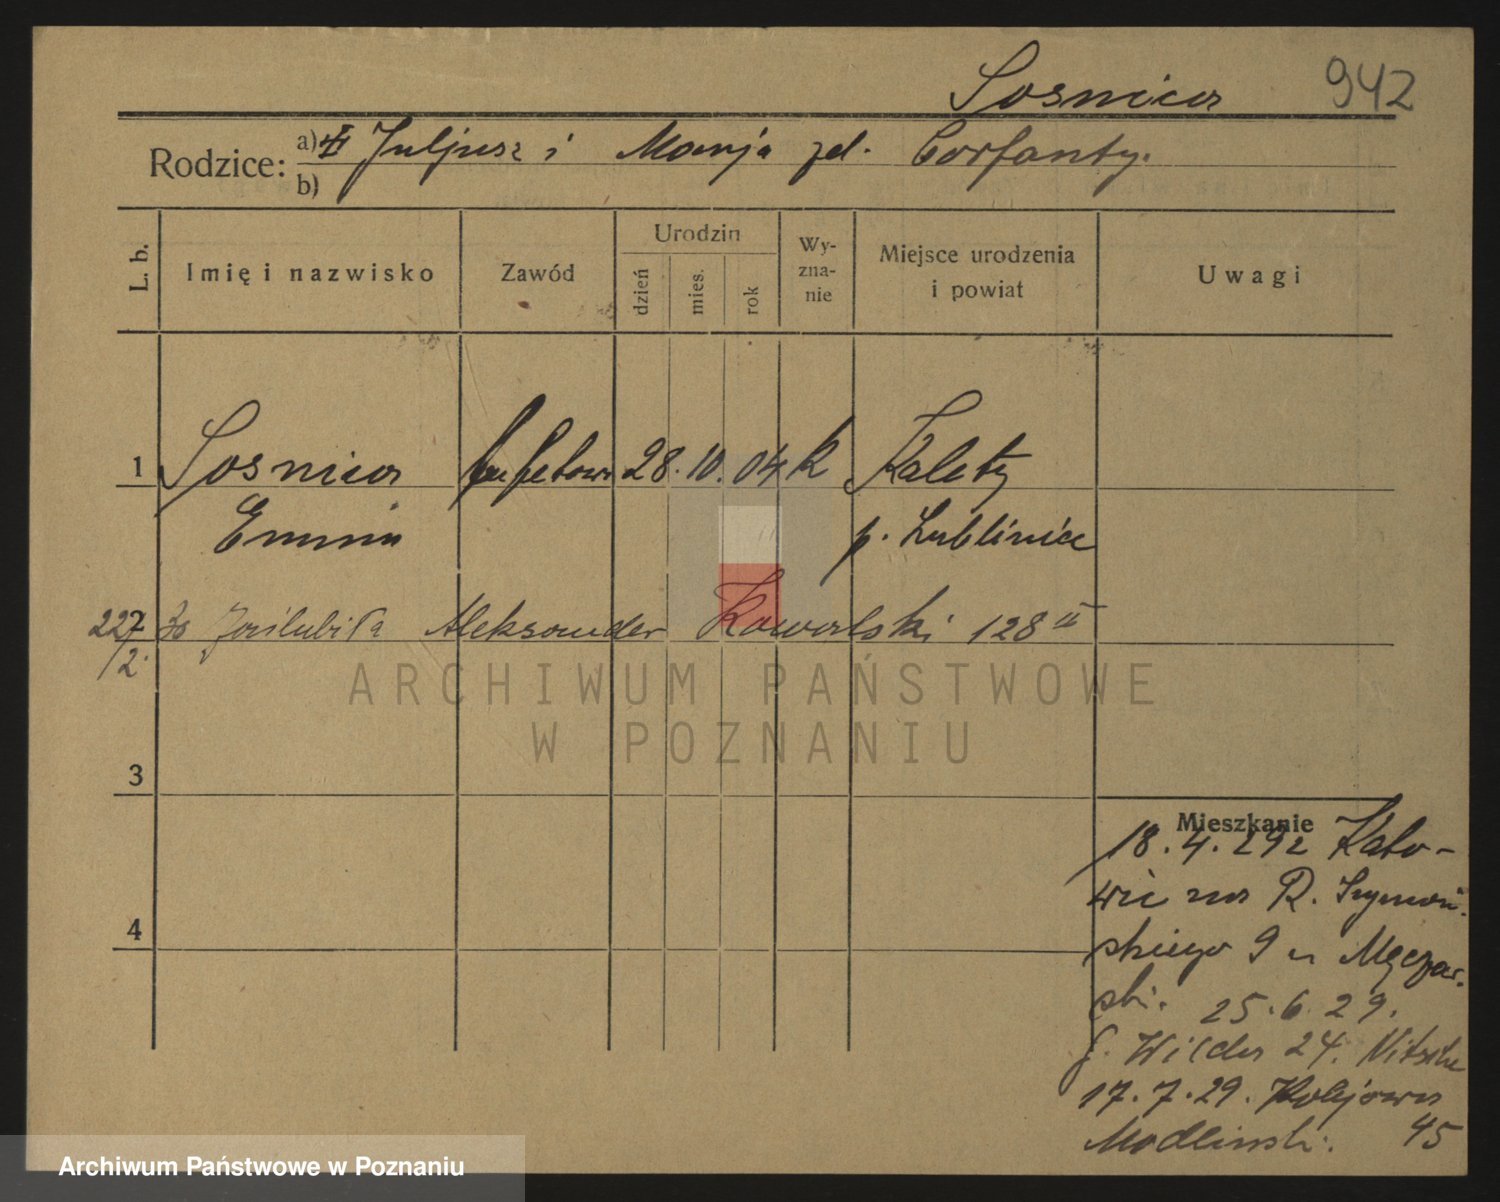 Sosnica 942
Rodzice: a) Juljusz i Marja zd. Corfanty.
b)
L. b. Imię i nazwisko Zawód Urodzin dzień mies. rok Wyzna-nie Miejsce urodzenia i powiat Uwagi
1 Sosnica bufetowa 28. 10. 04 k Kalety
Emma p. Lubliniec
2 Aleksander Kowalski 128
22/2.
ARCHIWUM PAŃSTWOWE
W POZNANIU
3
Mieszkanie
18. 4. 29 z Kato-
wic na R. Szymań-
4
skiego 9 u Męczar-
ski. 25. 6. 29.
g. Wilda 24. Nitsche
17. 7. 29. Kolejowa
45
Modlinski.
Archiwum Państwowe w Poznaniu